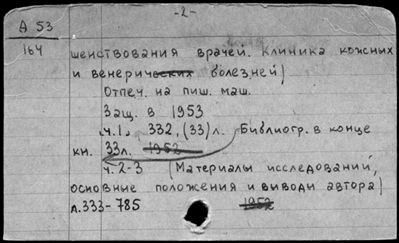 -2-
А 53
164
шенствования врачей. Клиника кожных
и венерических болезней)
Отпеч. на пиш. маш.
Защ. в 1953
ч.1. 332, (33) л. Библиогр. в конце
кн. 33л. 1952
ч. 2-3 (Материалы исследований,
основные положения и выводи автора)
л. 333-785 1952